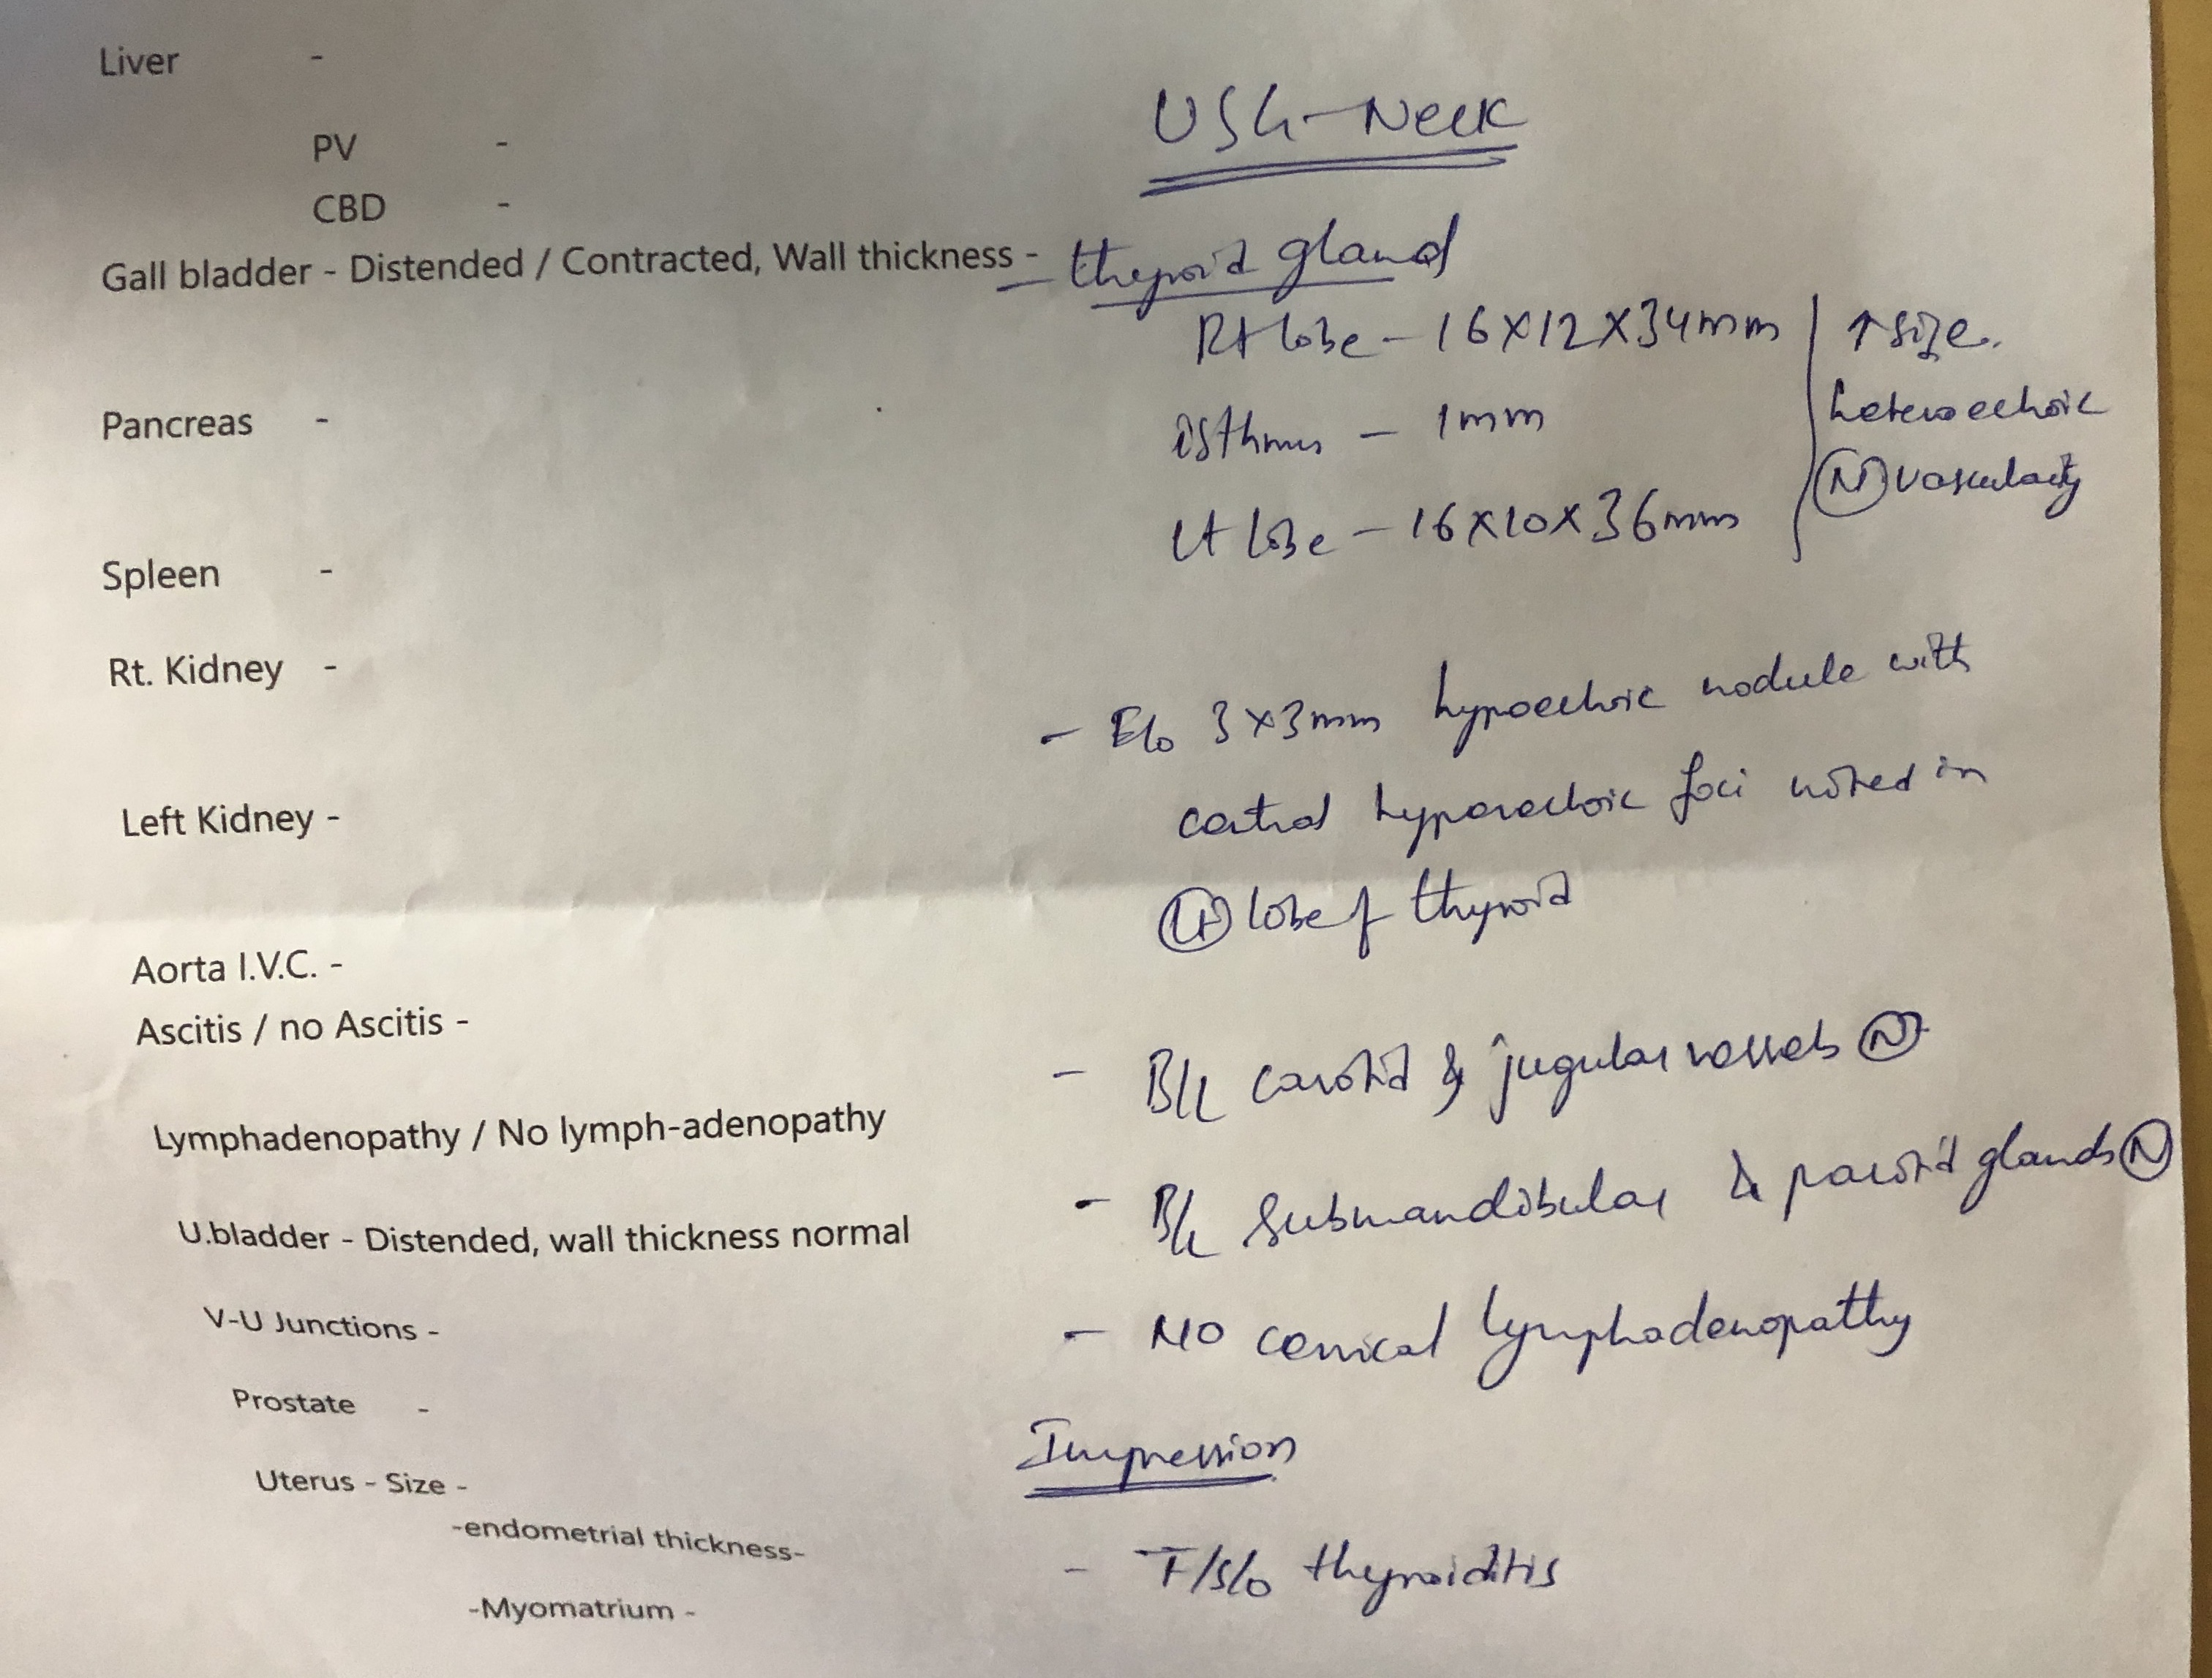 Liver -
USG - Neck
PV -
CBD -
Gall bladder - Distended / Contracted, Wall thickness -
- thyroid gland
Rt lobe - 16X12X34mm
↑ size.
Pancreas -
isthmus - 1mm
heteroechoic
(N) vascularity
Lt lobe - 16X10X36mm
Spleen -
Rt. Kidney -
- E/o 3x3mm hypoechoic nodule with
Left Kidney -
central hyperechoic foci noted in
(Lt) lobe of thyroid
Aorta I.V.C. -
Ascitis / no Ascitis -
- B/L carotid & jugular vessels (N)
Lymphadenopathy / No lymph-adenopathy
- B/L submandibular & parotid glands (N)
U.bladder - Distended, wall thickness normal
V-U Junctions -
- NO cervical lymphadenopathy
Prostate -
Impression
Uterus - Size -
-endometrial thickness-
- F/s/o thyroiditis
-Myomatrium -